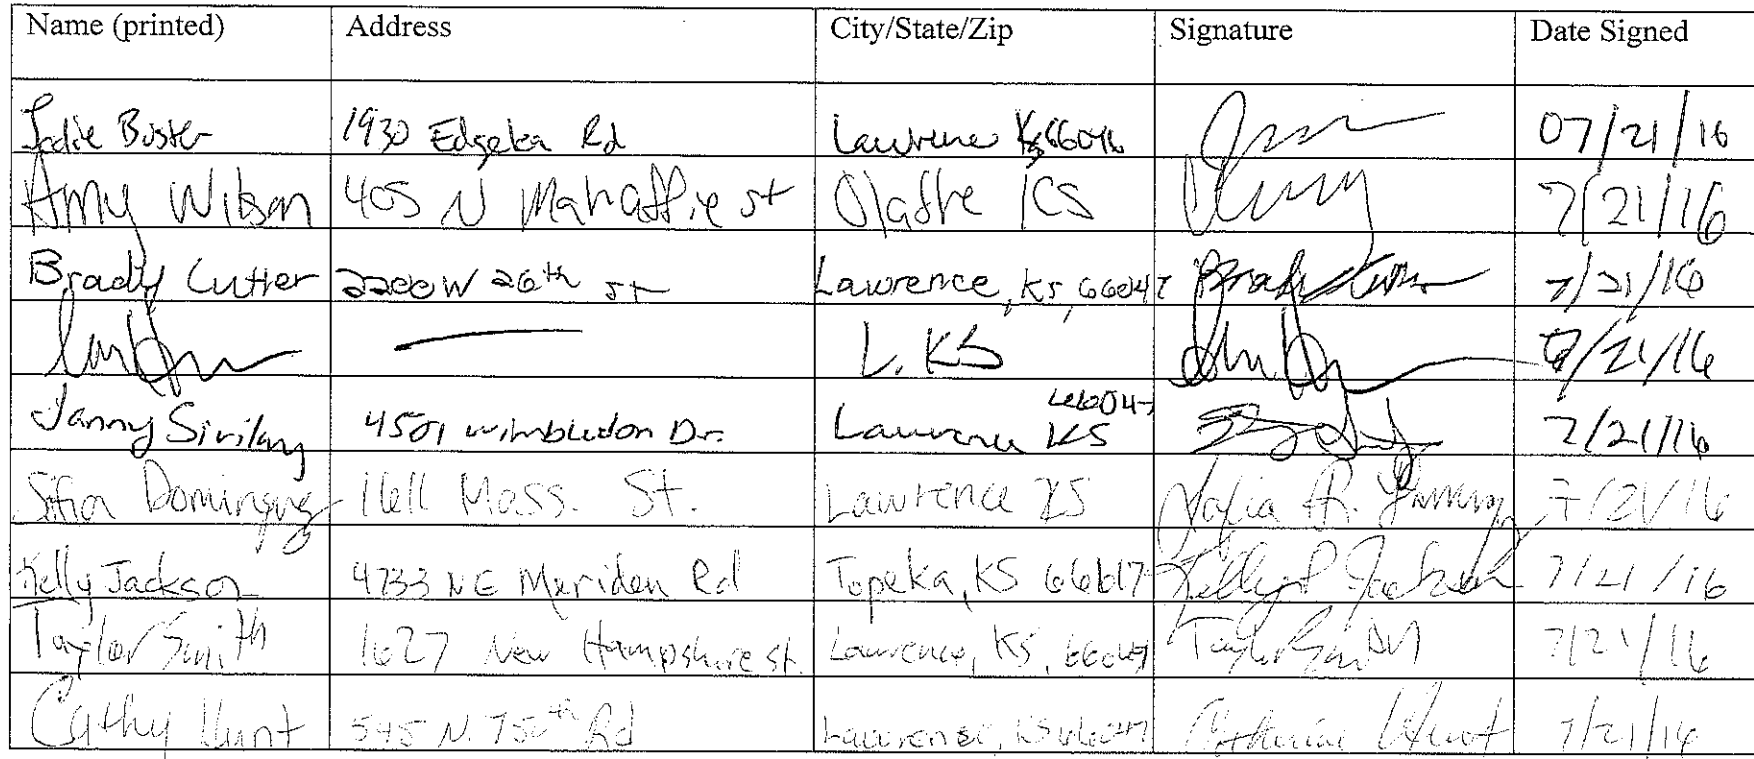 Name (printed) Address City/State/Zip Signature Date Signed
Jodie Buster 1930 Edgelea Rd Lawrence KS 66046 07/21/16
Amy Wilson 405 N Mahaffie st Olathe KS Amy 7/21/16
Brady Cutter 2200 W 26th st Lawrence, KS, 66047 Brady Cutter 7/21/16
L. KS 7/21/16
Janny 4501 wimbledon Dr. Lawrence KS 66047 7/21/16
Sofia Dominguez Mass. St. Lawrence KS Sofia 7/21/16
Kelly Jackson 4733 NE Meriden Rd Topeka, KS 66617 Kelly Jackson 7/21/16
Taylor Smith 1627 New Hampshire st. Lawrence, KS, Taylor Smith 7/21/16
Cathy Hunt 545 N. 750th Rd Lawrence, KS 66047 Catherine Hunt 7/21/16